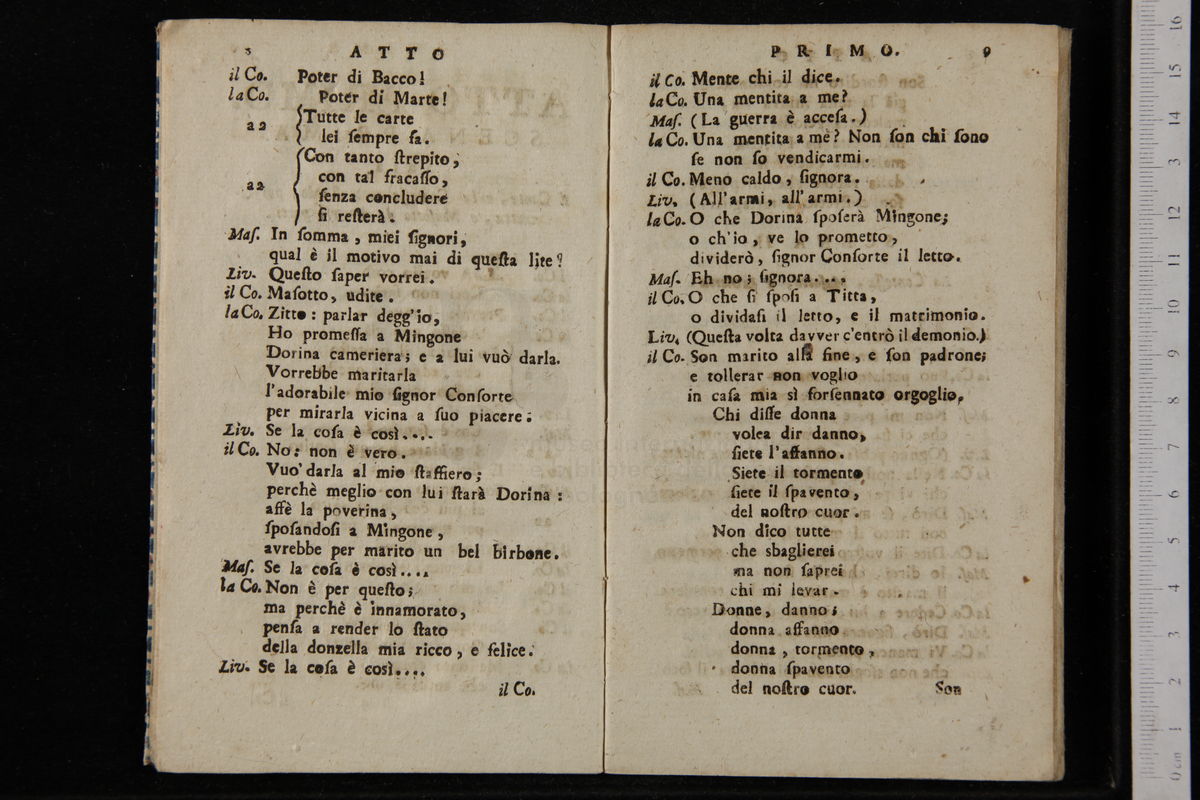 3 ATTO
il Co. Poter di Bacco!
la Co. Poter di Marte!
a 2 Tutte le carte
lei ſempre fa.
a 2 Con tanto ſtrepito,
con tal fracaſſo,
ſenza concludere
ſi reſterà.
Maſ. In ſomma, miei ſignori,
qual è il motivo mai di queſta lite?
Liv. Queſto ſaper vorrei.
il Co. Maſotto, udite.
la Co. Zitto: parlar degg'io,
Ho promeſſa a Mingone
Dorina cameriera; e a lui vuò darla.
Vorrebbe maritarla
l'adorabile mio ſignor Conſorte
per mirarla vicina a ſuo piacere.
Liv. Se la coſa è così....
il Co. No: non è vero.
Vuo' darla al mio ſtaffiero;
perchè meglio con lui ſtarà Dorina:
affè la poverina,
ſpoſandoſi a Mingone,
avrebbe per marito un bel birbone.
Maſ. Se la coſa è così....
la Co. Non è per queſto;
ma perchè è innamorato,
penſa a render lo ſtato
della donzella mia ricco, e felice.
Liv. Se la coſa è così....
il Co.
PRIMO. 9
il Co. Mente chi il dice.
la Co. Una mentita a me?
Maſ. (La guerra è acceſa.)
la Co. Una mentita a me? Non ſon chi ſono
ſe non ſo vendicarmi.
il Co. Meno caldo, ſignora.
Liv. (All'armi, all'armi.)
la Co. O che Dorina ſpoſerà Mingone;
o ch'io, ve lo prometto,
dividerò, ſignor Conſorte il letto.
Maſ. Eh no; ſignora....
il Co. O che ſi ſpoſi a Titta,
o dividaſi il letto, e il matrimonio.
Liv. (Queſta volta davver c'entrò il demonio.)
il Co. Son marito alla fine, e ſon padrone;
e tollerar non voglio
in caſa mia sì forſennato orgoglio.
Chi diſſe donna
volea dir danno,
ſiete l'affanno.
Siete il tormento
ſiete il ſpavento,
del noſtro cuor.
Non dico tutte
che sbaglierei
ma non ſaprei
chi mi levar.
Donne, danno;
donna affanno
donna, tormento,
donna ſpavento
del noſtro cuor.
Son
16
15
14
13
12
11
10
9
8
7
6
5
4
3
2
1
0 cm